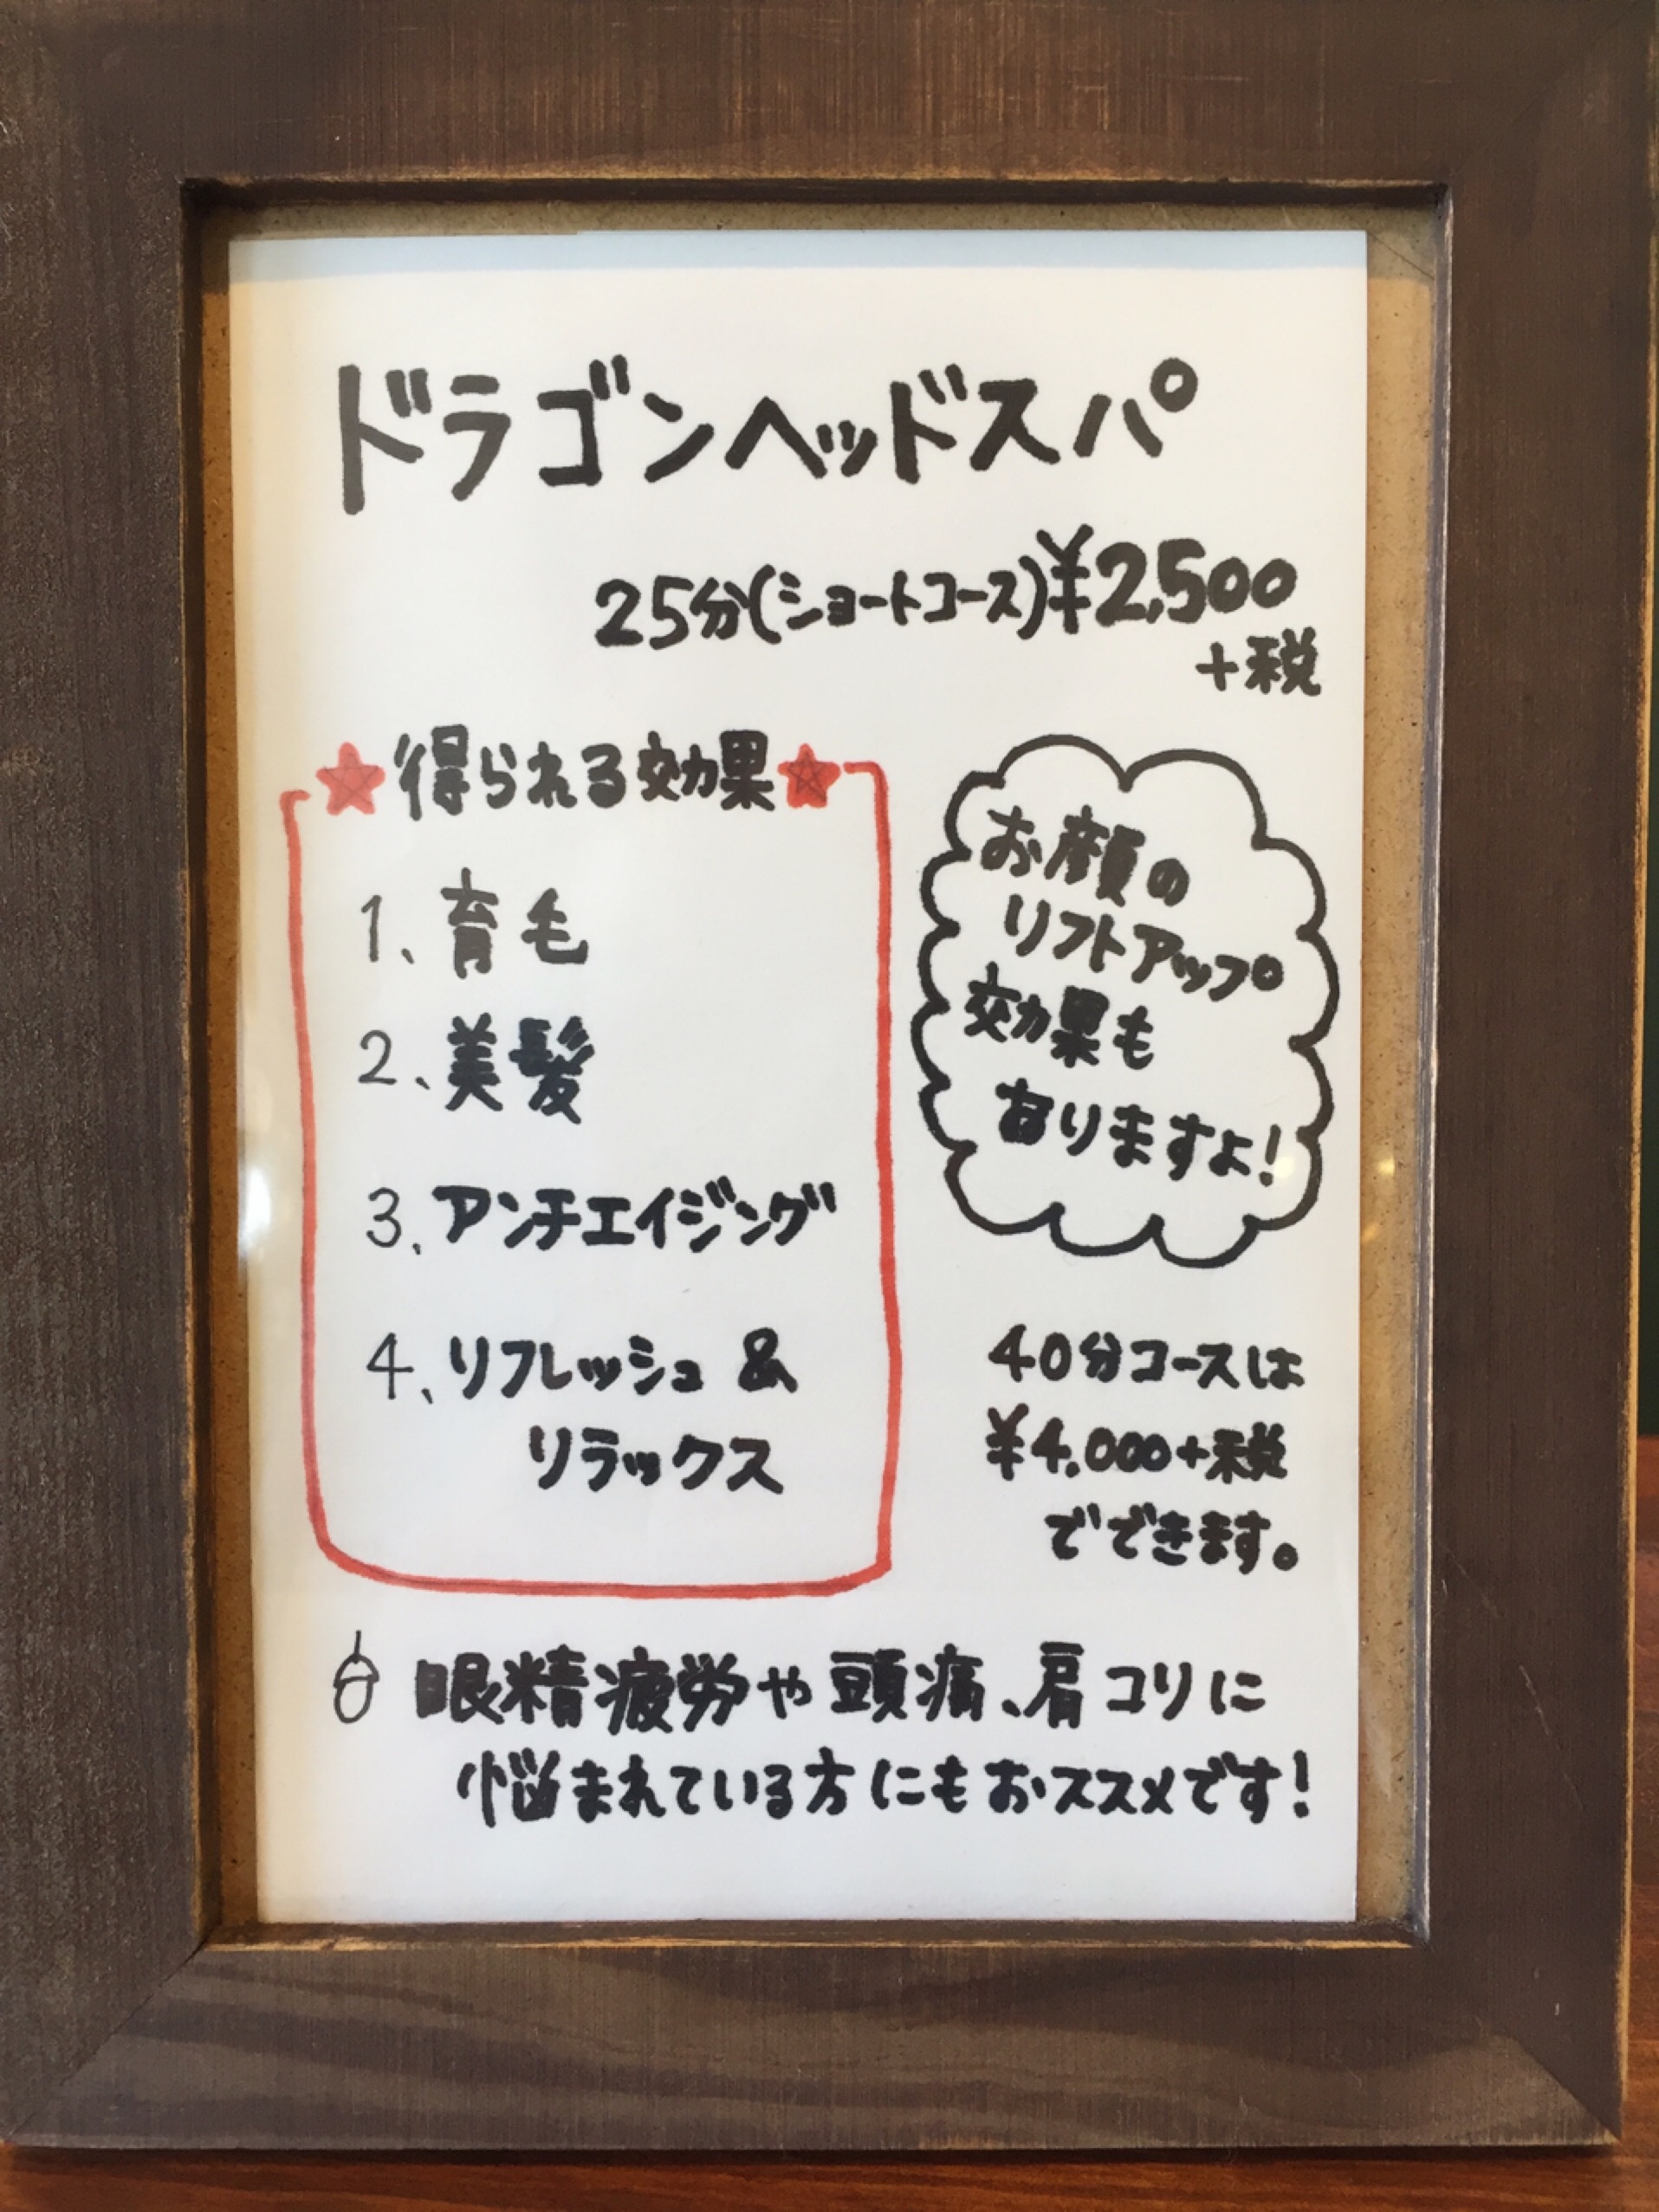 ドラゴンヘッドスパ
25分(ショートコース)¥2,500
+税
★得られる効果★
1、育毛
2、美髪
3、アンチエイジング
4、リフレッシュ &
リラックス
お顔の
リフトアップ
効果も
ありますよ!
40分コースは
¥4,000+税
でできます。
眼精疲労や頭痛、肩コリに
悩まれている方にもおススメです!